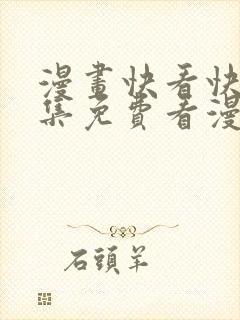 漫畫快看快
集免費看漫
石頭羊